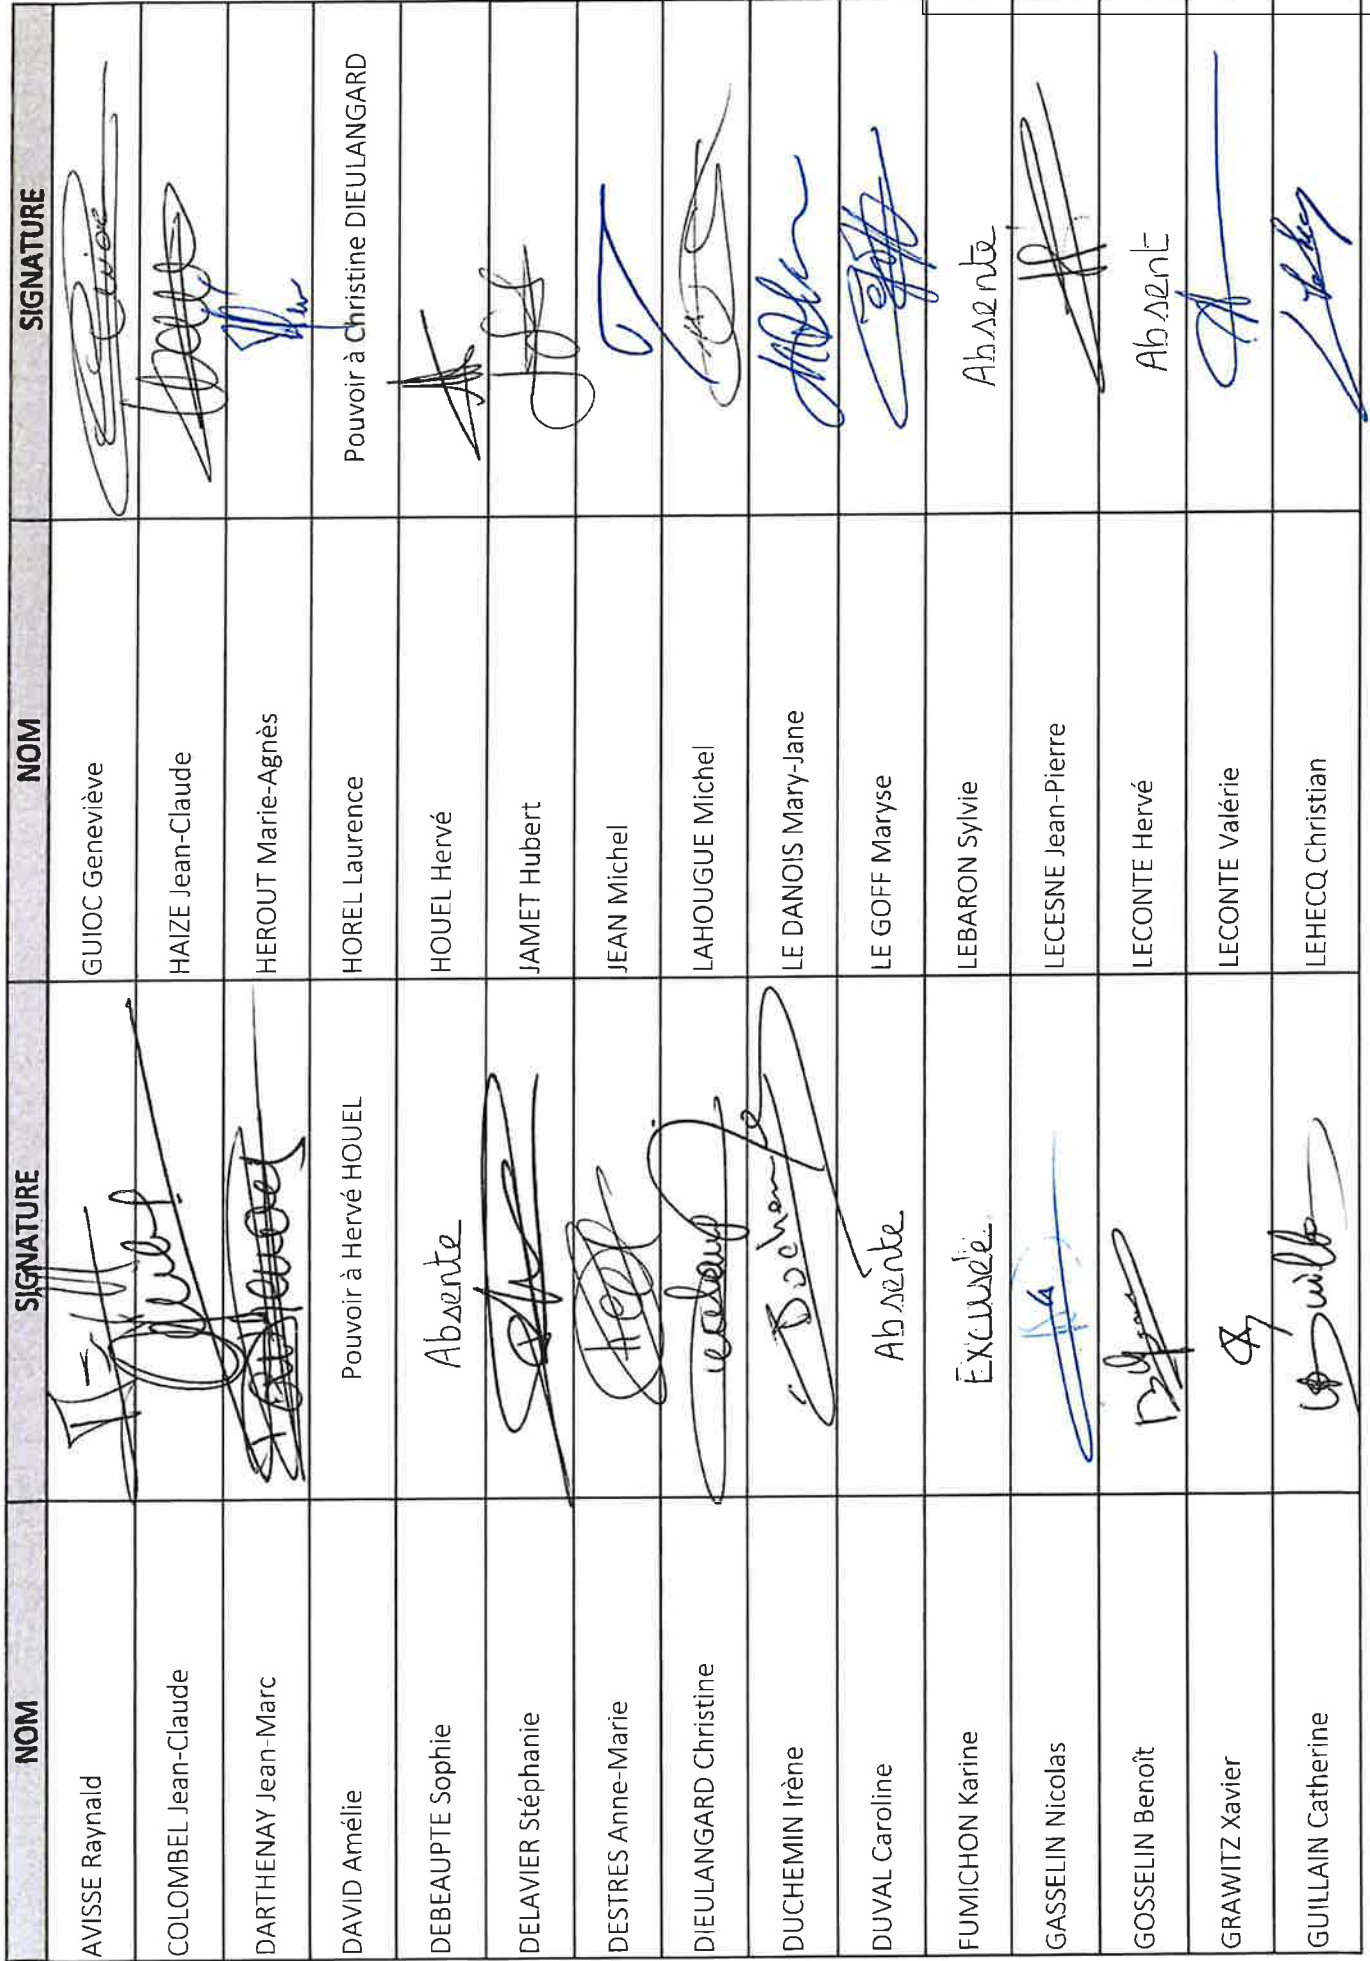 NOM SIGNATURE NOM SIGNATURE
AVISSE Raynald GUIOC Geneviève
COLOMBEL Jean-Claude HAIZE Jean-Claude
DARTHENAY Jean-Marc HEROUT Marie-Agnès
DAVID Amélie Pouvoir à Hervé HOUEL HOREL Laurence Pouvoir à Christine DIEULANGARD
DEBEAUPTE Sophie Absente HOUEL Hervé
DELAVIER Stéphanie JAMET Hubert
DESTRES Anne-Marie JEAN Michel
DIEULANGARD Christine LAHOUGUE Michel
DUCHEMIN Irène LE DANOIS Mary-Jane
DUVAL Caroline Absente LE GOFF Maryse
FUMICHON Karine Excusée LEBARON Sylvie Absente
GASSELIN Nicolas LECESNE Jean-Pierre
GOSSELIN Benoît LECONTE Hervé Absent
GRAWITZ Xavier LECONTE Valérie
GUILLAIN Catherine LEHECQ Christian